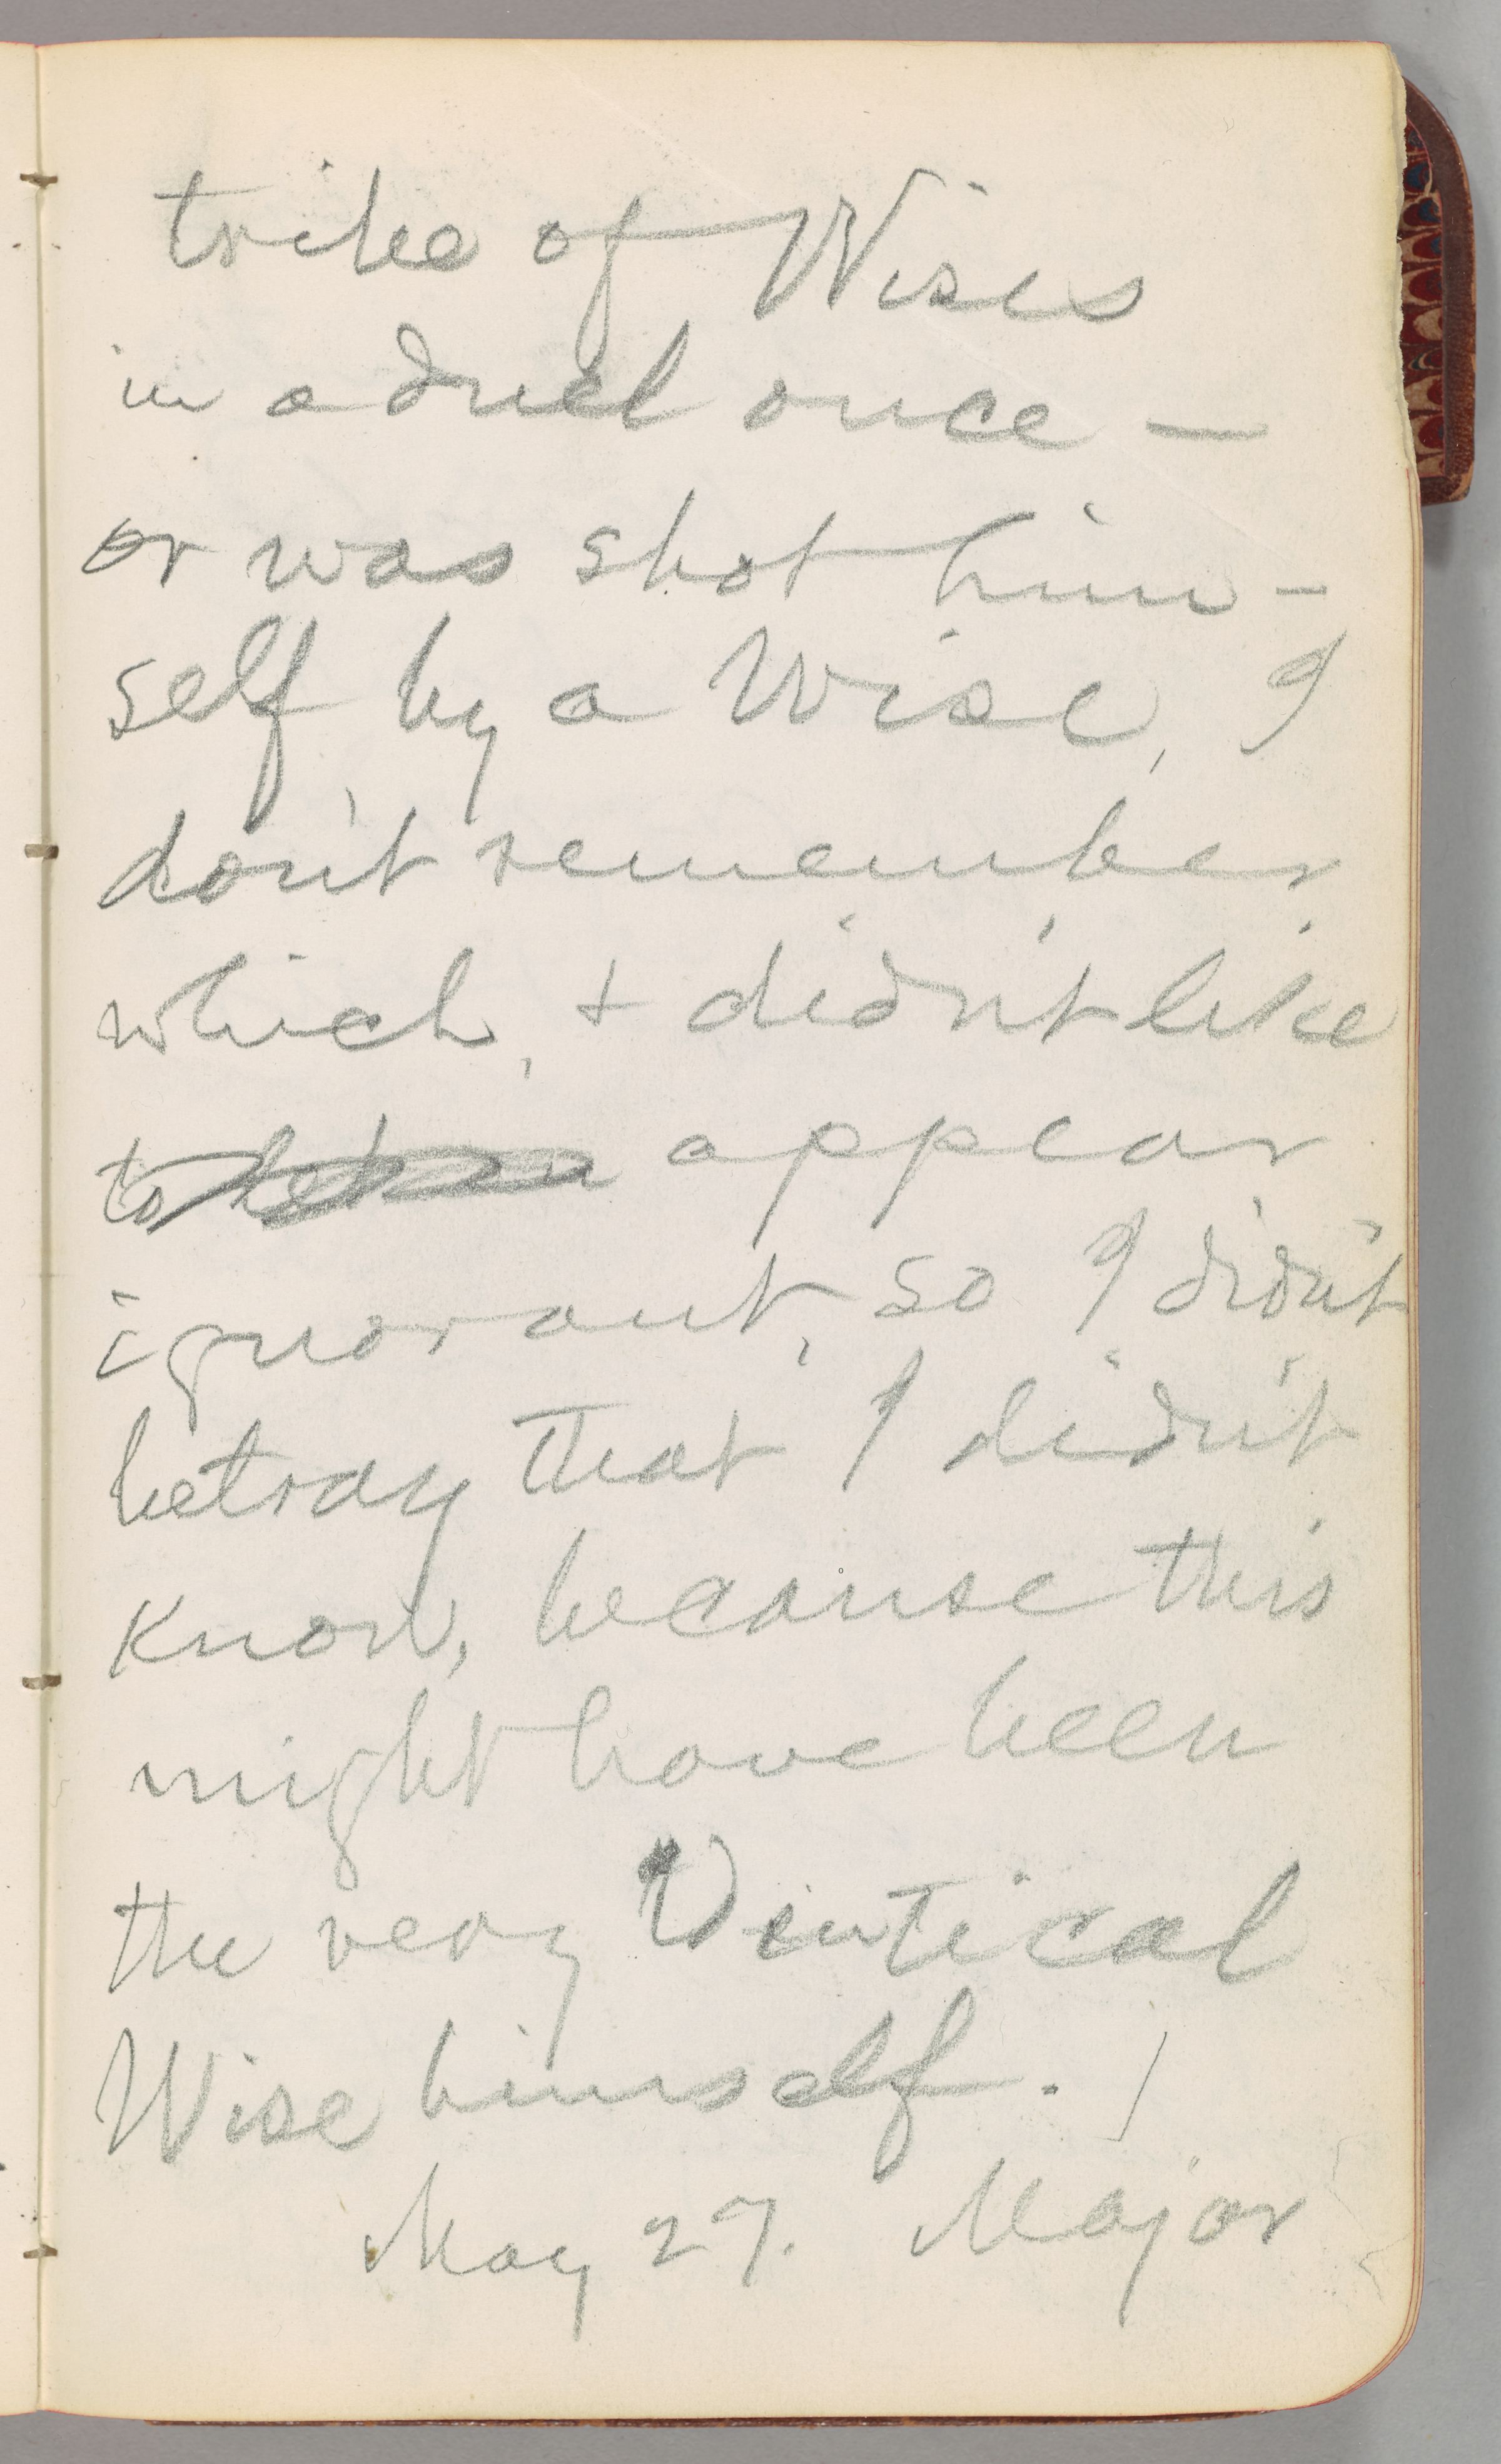 tribe of Wises
in a duel once —
or was shot him-
self by a Wise, I
don't remember
which, + didn't like
to appear
ignorant, so I didn't
betray that I didn't
know, because this
might have been
the very identical
Wise himself.
May 27. Major